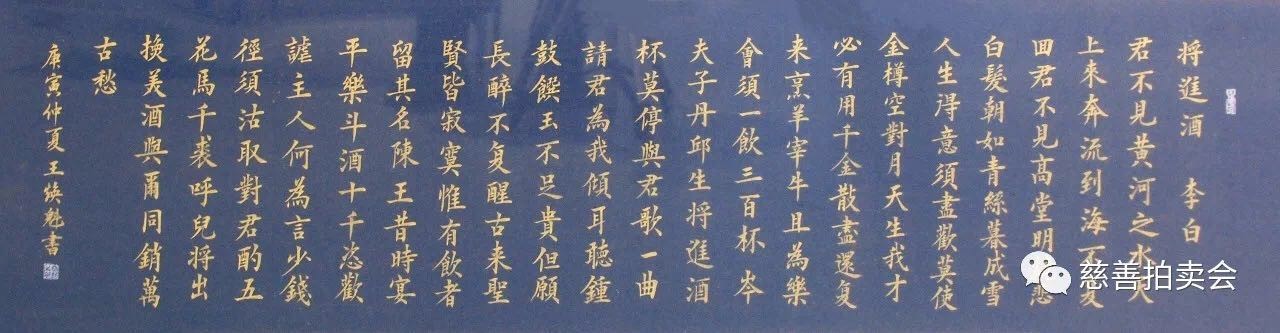 将進酒 李白
君不見黄河之水天
上來奔流到海不复
囬君不見髙堂明悲
白髮朝如青絲暮成雪
人生得意須盡歡莫使
金樽空對月天生我才
必有用千金散盡還复
来烹羊宰牛且為樂
會須一飲三百杯岑
夫子丹邱生将進酒
杯莫停與君歌一曲
請君為我傾耳聽鍾
鼓饌玉不足貴但願
長醉不复醒古来聖
賢皆寂寞惟有飲者
留其名陳王昔時宴
平樂斗酒十千恣歡
謔主人何為言少錢
徑須沽取對君酌五
花馬千裘呼兒将出
換美酒與爾同銷萬
古愁
庚寅仲夏王焕魁書
慈善拍卖会